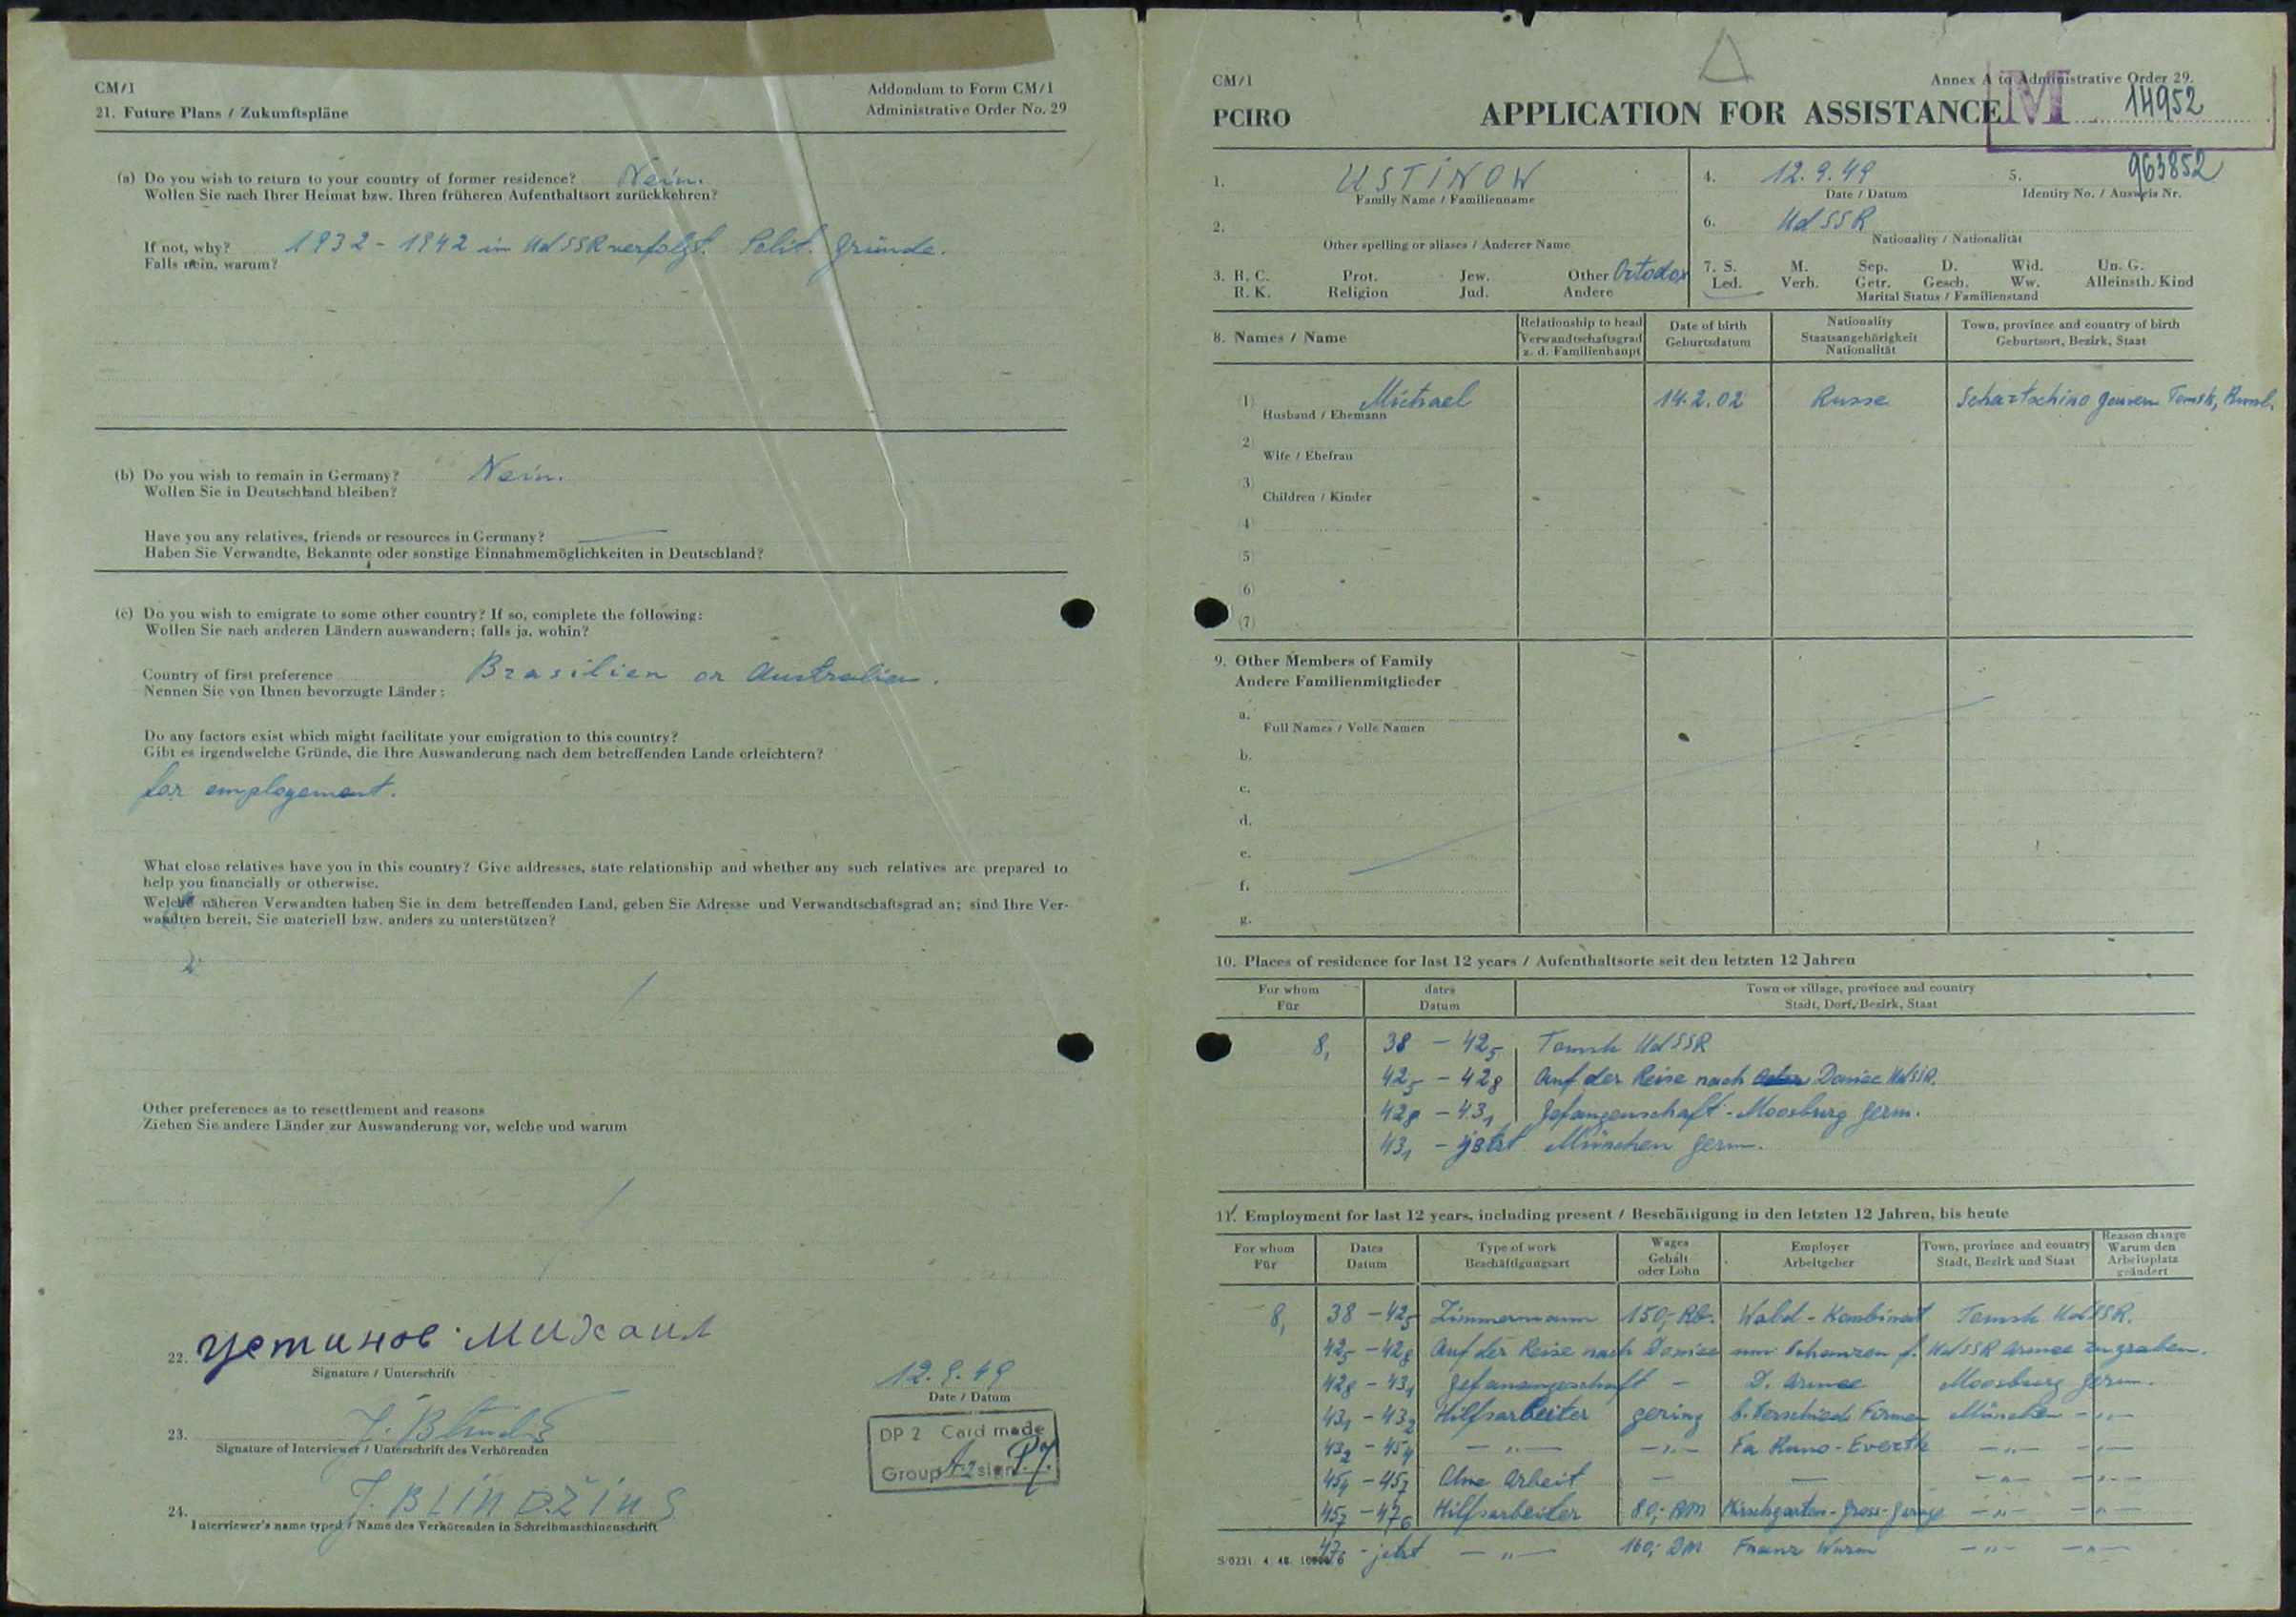 CM/1
Addondum to Form CM/1
21. Future Plans / Zukunftspläne
Administrative Order No. 29
(a) Do you wish to return to your country of former residence? Nein.
Wollen Sie nach Ihrer Heimat bzw. Ihren früheren Aufenthaltsort zurückkehren?
If not, why? 1932 - 1942 in UdSSR verfolgt. Polit. Gründe.
Falls nein, warum?
(b) Do you wish to remain in Germany? Nein.
Wollen Sie in Deutschland bleiben?
Have you any relatives, friends or resources in Germany? —
Haben Sie Verwandte, Bekannte oder sonstige Einnahmemöglichkeiten in Deutschland?
(c) Do you wish to emigrate to some other country? If so, complete the following:
Wollen Sie nach anderen Ländern auswandern; falls ja, wohin?
Country of first preference Brasilien or Australien.
Nennen Sie von Ihnen bevorzugte Länder:
Do any factors exist which might facilitate your emigration to this country?
Gibt es irgendwelche Gründe, die Ihre Auswanderung nach dem betreffenden Lande erleichtern?
for employement.
What close relatives have you in this country? Give addresses, state relationship and whether any such relatives are prepared to
help you financially or otherwise.
Welche näheren Verwandten haben Sie in dem betreffenden Land, geben Sie Adresse und Verwandtschaftsgrad an; sind Ihre Ver-
wandten bereit, Sie materiell bzw. anders zu unterstützen?
Other preferences as to resettlement and reasons
Ziehen Sie andere Länder zur Auswanderung vor, welche und warum
22. Устинов Михаил
Signature / Unterschrift
12.9.49
Date / Datum
23.
Signature of Interviewer / Unterschrift des Verhörenden
DP 2 Card made
Group A2 sign
24. J. BLINDŽIUS
Interviewer's name typed / Name des Verhörenden in Schreibmaschinenschrift
CM/1
Annex A to Administrative Order 29.
PCIRO APPLICATION FOR ASSISTANCE
M 14952
1. USTINOW
Family Name / Familienname
4. 12.9.49
Date / Datum
5. 963852
Identity No. / Ausweis Nr.
2.
Other spelling or aliases / Anderer Name
6. UdSSR
Nationality / Nationalität
3. R. C. Prot. Jew. Other Ortodox
R. K. Religion Jud. Andere
7. S. M. Sep. D. Wid. Un. G.
Led. Verh. Getr. Gesch. Ww. Alleinsth. Kind
Marital Status / Familienstand
8. Names / Name
Relationship to head
Verwandtschaftsgrad
z. d. Familienhaupt
Date of birth
Geburtsdatum
Nationality
Staatsangehörigkeit
Nationalität
Town, province and country of birth
Geburtsort, Bezirk, Staat
(1) Michael 14.2.02 Russe Schartschino Gouvern Tomsk, Russl.
Husband / Ehemann
(2)
Wife / Ehefrau
(3)
Children / Kinder
(4)
(5)
(6)
(7)
9. Other Members of Family
Andere Familienmitglieder
a.
Full Names / Volle Namen
b.
c.
d.
e.
f.
g.
10. Places of residence for last 12 years / Aufenthaltsorte seit den letzten 12 Jahren
For whom
Für
dates
Datum
Town or village, province and country
Stadt, Dorf, Bezirk, Staat
8, 38 - 42₅ Tomsk UdSSR
42₅ - 42₈ Auf der Reise nach Doniec UdSSR.
42₈ - 43₁ Gefangenschaft - Moosburg Germ.
43₁ - jetzt München Germ.
11. Employment for last 12 years, including present / Beschäftigung in den letzten 12 Jahren, bis heute
For whom
Für
Dates
Datum
Type of work
Beschäftigungsart
Wages
Gehalt
oder Lohn
Employer
Arbeitgeber
Town, province and country
Stadt, Bezirk und Staat
Reason change
Warum den
Arbeitsplatz
geändert
8, 38 - 42₅ Zimmermann 150,- Rb. Wald-Kombinat Tomsk UdSSR.
42₅ - 42₈ Auf der Reise nach Doniec um Schanzen f. UdSSR Armee zu graben.
42₈ - 43₁ Gefanangeschaft - D. Armee Moosburg Germ.
43₁ - 43₂ Hilfsarbeiter gering b. Verschied. Firmen München -"-
43₂ - 45₄ -"- -"- Fa Kuno-Everth -"- -"-
45₄ - 45₇ Ohne Arbeit - - -"- -"-
45₇ - 47₆ Hilfsarbeiter 80,- RM -"- -"-
47₆ - jetzt -"- 160,- DM Franz Wurm -"- -"-